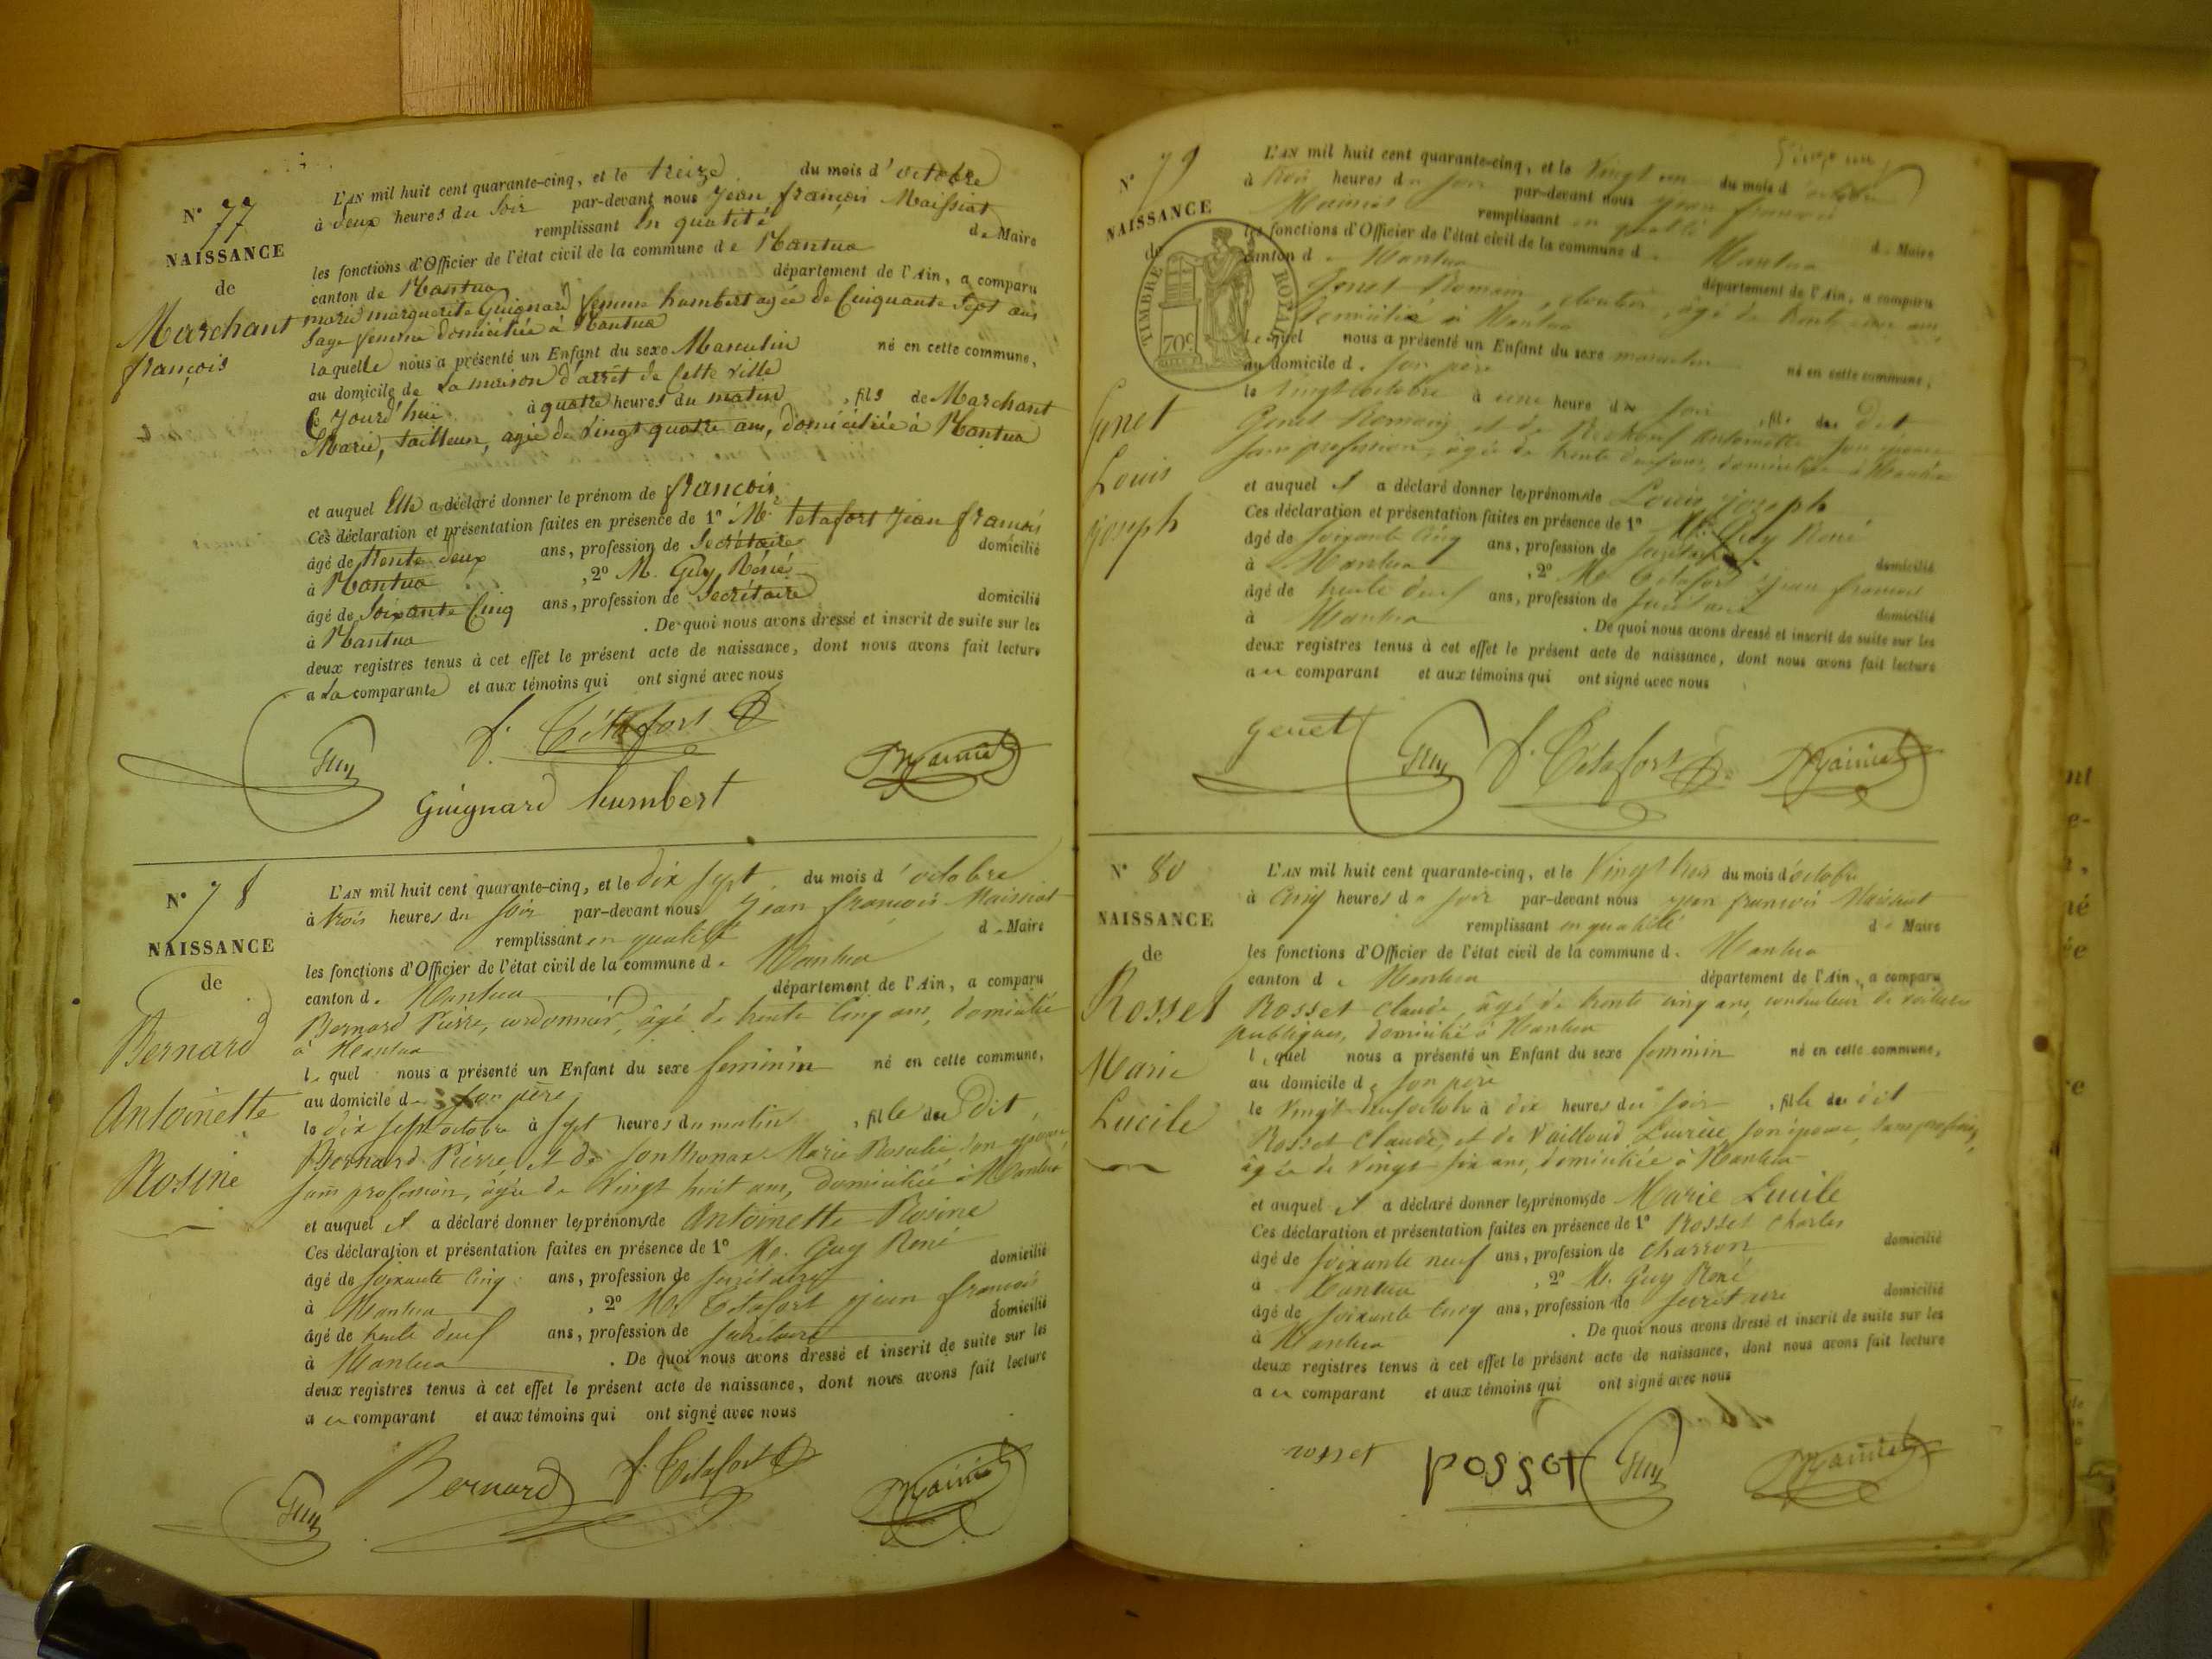 N° 77
NAISSANCE
de
Marchant
françois
L'AN mil huit cent quarante-cinq, et le treize du mois d'octobre
à deux heures du Soir par-devant nous Jean françois Maissiat
remplissant en qualité de Maire
les fonctions d'Officier de l'état civil de la commune de Nantua
canton de Nantua département de l'Ain, a comparu
marie marguerite Guignard femme humbert agée de Cinquante Sept ans
Sage femme domiciliée à Nantua
laquelle nous a présenté un Enfant du sexe Masculin né en cette commune,
au domicile de La maison d'arrêt de Cette ville
Ce Jourd'hui à quatre heures du matin, fils de Marchant
Marie, tailleur, agée de Vingt quatre ans, domiciliée à Nantua
et auquel Elle a déclaré donner le prénom de françois
Ces déclaration et présentation faites en présence de 1° Mr. tetafort Jean françois
âgé de trente deux ans, profession de Secrétaire domicilié
à Nantua, 2° M. Guy Réné
âgé de Soixante Cinq ans, profession de Secrétaire domicilié
à Nantua. De quoi nous avons dressé et inscrit de suite sur les
deux registres tenus à cet effet le présent acte de naissance, dont nous avons fait lecture
a La comparante et aux témoins qui ont signé avec nous
Guy
Tétafort
Guignard humbert
N° 78
NAISSANCE
de
Bernard
Antoinette
Rosine
L'AN mil huit cent quarante-cinq, et le dix sept du mois d'octobre
à trois heures du Soir par-devant nous Jean françois Maissiat
remplissant en qualité d. Maire
les fonctions d'Officier de l'état civil de la commune d. Nantua
canton d. Nantua département de l'Ain, a comparu
Bernard Pierre, cordonnier, âgé de trente Cinq ans, domicilié
à Nantua
l. quel nous a présenté un Enfant du sexe feminin né en cette commune,
au domicile d. son père
le dix sept octobre à sept heures du matin, fille du dit
Bernard Pierre, et de Marie Rosalie son épouse
sans profession, âgée de Vingt huit ans, domiciliée à Nantua
et auquel il a déclaré donner les prénoms de Antoinette Rosine
Ces déclaration et présentation faites en présence de 1° Mr. Guy René
âgé de soixante Cinq ans, profession de secrétaire domicilié
à Nantua, 2° Mr Tétafort jean françois
âgé de trente deux ans, profession de secrétaire domicilié
à Nantua. De quoi nous avons dressé et inscrit de suite sur les
deux registres tenus à cet effet le présent acte de naissance, dont nous avons fait lecture
a u comparant et aux témoins qui ont signé avec nous
Guy
Bernard
Tétafort
N° 79
NAISSANCE
de
TIMBRE ROYAL
70c
Genet
Louis
joseph
L'AN mil huit cent quarante-cinq, et le Vingt un du mois d'octobre
à trois heures du soir par-devant nous jean françois
remplissant en qualité d. Maire
les fonctions d'Officier de l'état civil de la commune d. Nantua
canton d. Nantua département de l'Ain, a comparu
Genet Romain, cloutier, âgé de trente un ans,
domicilié à Nantua
Lequel nous a présenté un Enfant du sexe masculin né en cette commune,
au domicile d. son père
le vingt octobre à une heure du soir, fils du dit
Genet Romain, et de Antoinette son épouse
sans profession, âgée de trente deux ans, domiciliée à Nantua
et auquel il a déclaré donner les prénoms de Louis joseph
Ces déclaration et présentation faites en présence de 1° Mr. Guy René
âgé de soixante Cinq ans, profession de secrétaire domicilié
à Nantua, 2° Mr. Tétafort jean françois
âgé de trente deux ans, profession de secrétaire domicilié
à Nantua. De quoi nous avons dressé et inscrit de suite sur les
deux registres tenus à cet effet le présent acte de naissance, dont nous avons fait lecture
a u comparant et aux témoins qui ont signé avec nous
genet
Guy
Tétafort
N° 80
NAISSANCE
de
Rosset
Marie
Lucile
L'AN mil huit cent quarante-cinq, et le Vingt trois du mois d'octobre
à Cinq heures du soir par-devant nous jean françois Maissiat
remplissant en qualité d. Maire
les fonctions d'Officier de l'état civil de la commune d. Nantua
canton d. Nantua département de l'Ain, a comparu
Rosset claude, âgé de trente cinq ans, conducteur de voitures
publiques, domicilié à Nantua
l. quel nous a présenté un Enfant du sexe feminin né en cette commune,
au domicile d. son père
le octobre à dix heures du soir, fille du dit
Rosset Claude, et de son épouse, sans profession,
âgée de Vingt six ans, domiciliée à Nantua
et auquel il a déclaré donner les prénoms de Marie Lucile
Ces déclaration et présentation faites en présence de 1° Rosset Charles
âgé de soixante neuf ans, profession de charron domicilié
à Nantua, 2° Mr. Guy René
âgé de soixante Cinq ans, profession de secrétaire domicilié
à Nantua. De quoi nous avons dressé et inscrit de suite sur les
deux registres tenus à cet effet le présent acte de naissance, dont nous avons fait lecture
a u comparant et aux témoins qui ont signé avec nous
rosset
rosset
Guy